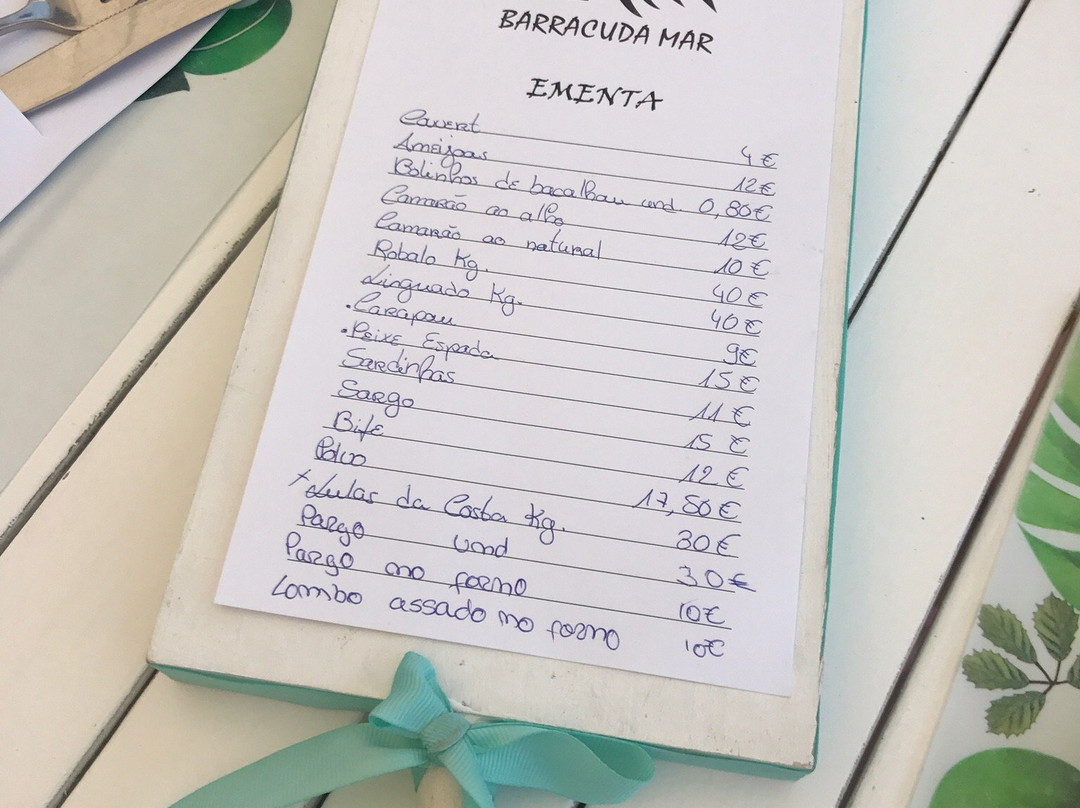 BARRACUDA MAR
EMENTA
Couvert 4€
Ameijoas 12€
Bolinhos de bacalhau und 0,80€
Camarão ao alho 12€
Camarão ao natural 10€
Robalo Kg. 40€
Linguado Kg. 40€
.Carapau 9€
.Peixe Espada 15€
Sardinhas 11€
Sargo 15€
Bife 12€
Polvo 17,50€
+ Lulas da Costa Kg. 30€
Pargo und 30€
Pargo no forno 10€
Lombo assado no forno 10€